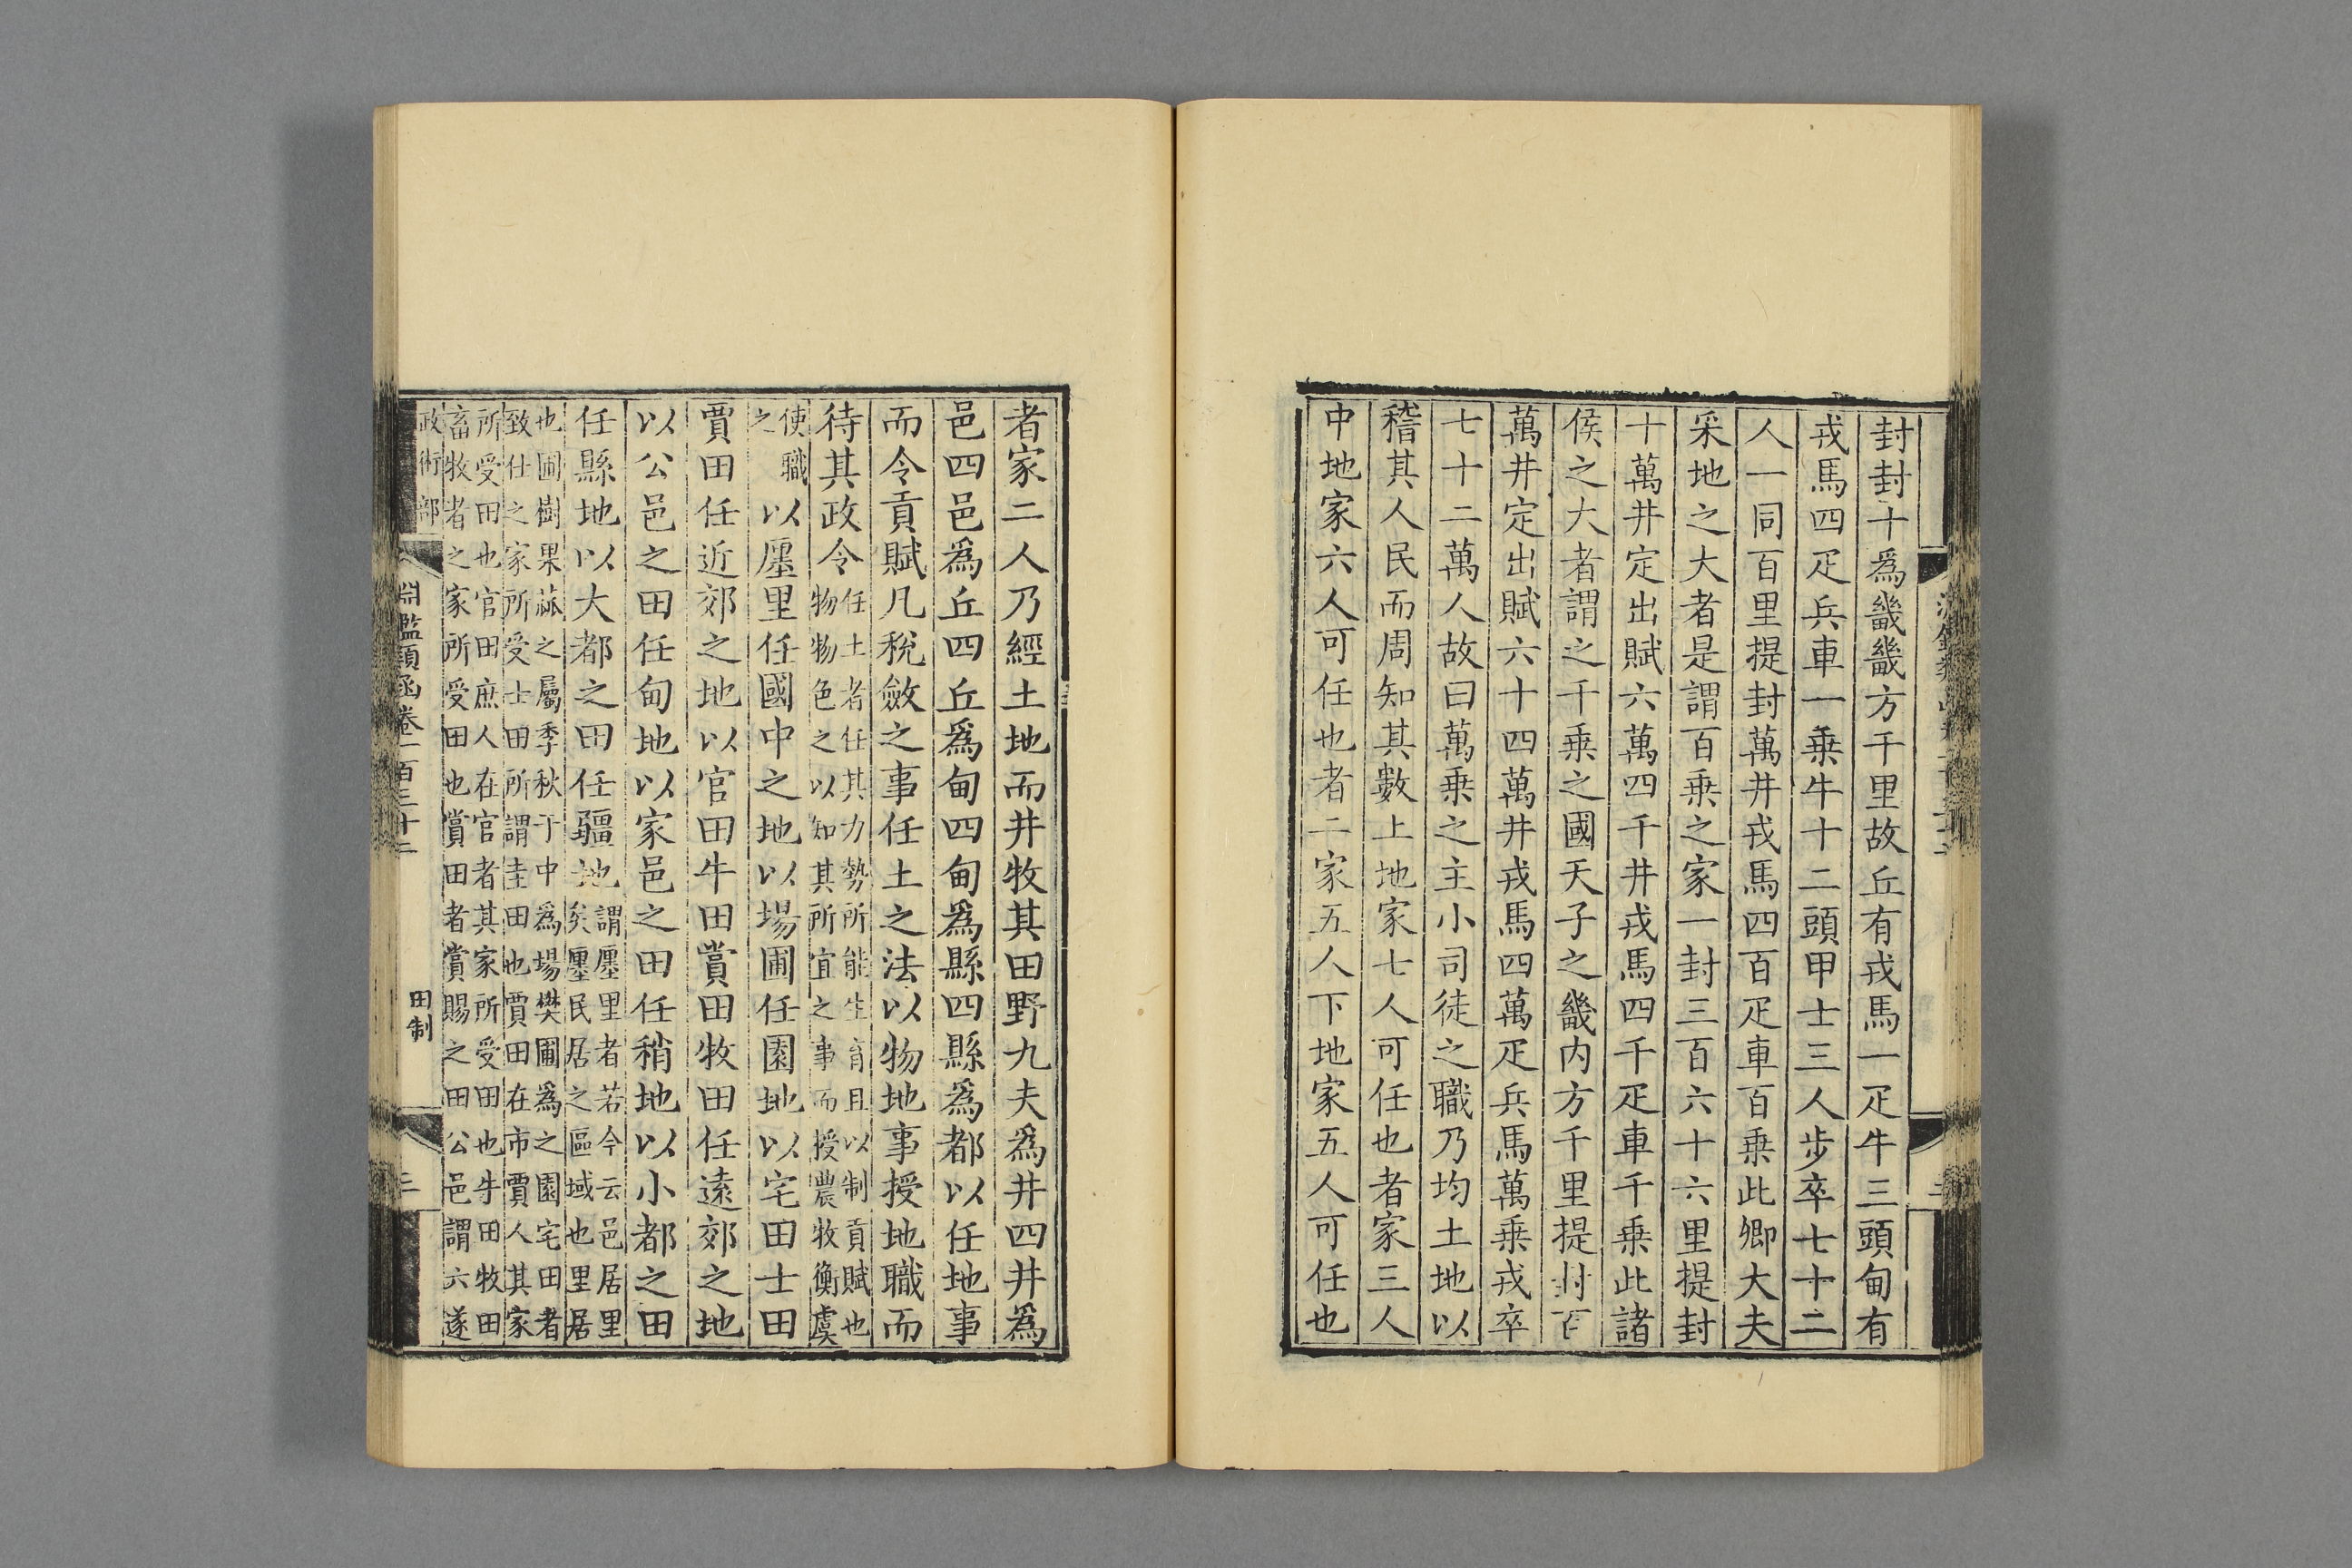 封封十爲畿畿方千里故丘有戎馬一疋牛三頭甸有
戎馬四疋兵車一乗牛十二頭甲士三人步卒七十二
人一同百里提封萬井戎馬四百疋車百乗此卿大夫
采地之大者是謂百乗之家一封三百六十六里提封
十萬井定出賦六萬四千井戎馬四千疋車千乗此諸
侯之大者謂之千乗之國天子之畿内方千里提封百
萬井定出賦六十四萬井戎馬四萬疋兵馬萬乗戎卒
七十二萬人故曰萬乗之主小司徒之職乃均土地以
稽其人民而周知其數上地家七人可任也者家三人
中地家六人可任也者二家五人下地家五人可任也
者家二人乃經土地而井牧其田野九夫爲井四井爲
邑四邑爲丘四丘爲甸四甸爲縣四縣爲都以任地事
而令貢賦凡稅斂之事任土之法以物地事授地職而
待其政令
任土者任其力勢所能生育且以制貢賦也
物物色之以知其所宜之事而授農牧衡虞
使職
之
以廛里任國中之地以場圃任園地以宅田士田
賈田任近郊之地以官田牛田賞田牧田任遠郊之地
以公邑之田任甸地以家邑之田任稍地以小都之田
任縣地以大都之田任疆地
謂廛里者若今云邑居里
矣廛民居之區域也里居
也圃樹果蓏之屬季秋于中爲場樊圃爲之園宅田者
致仕之家所受士田所謂圭田也賈田在市賈人其家
所受田也官田庶人在官者其家所受田也牛田牧田
畜牧者之家所受田也賞田者賞賜之田公邑謂六遂
政術部
淵鑑類函卷一百三十二
田制
三